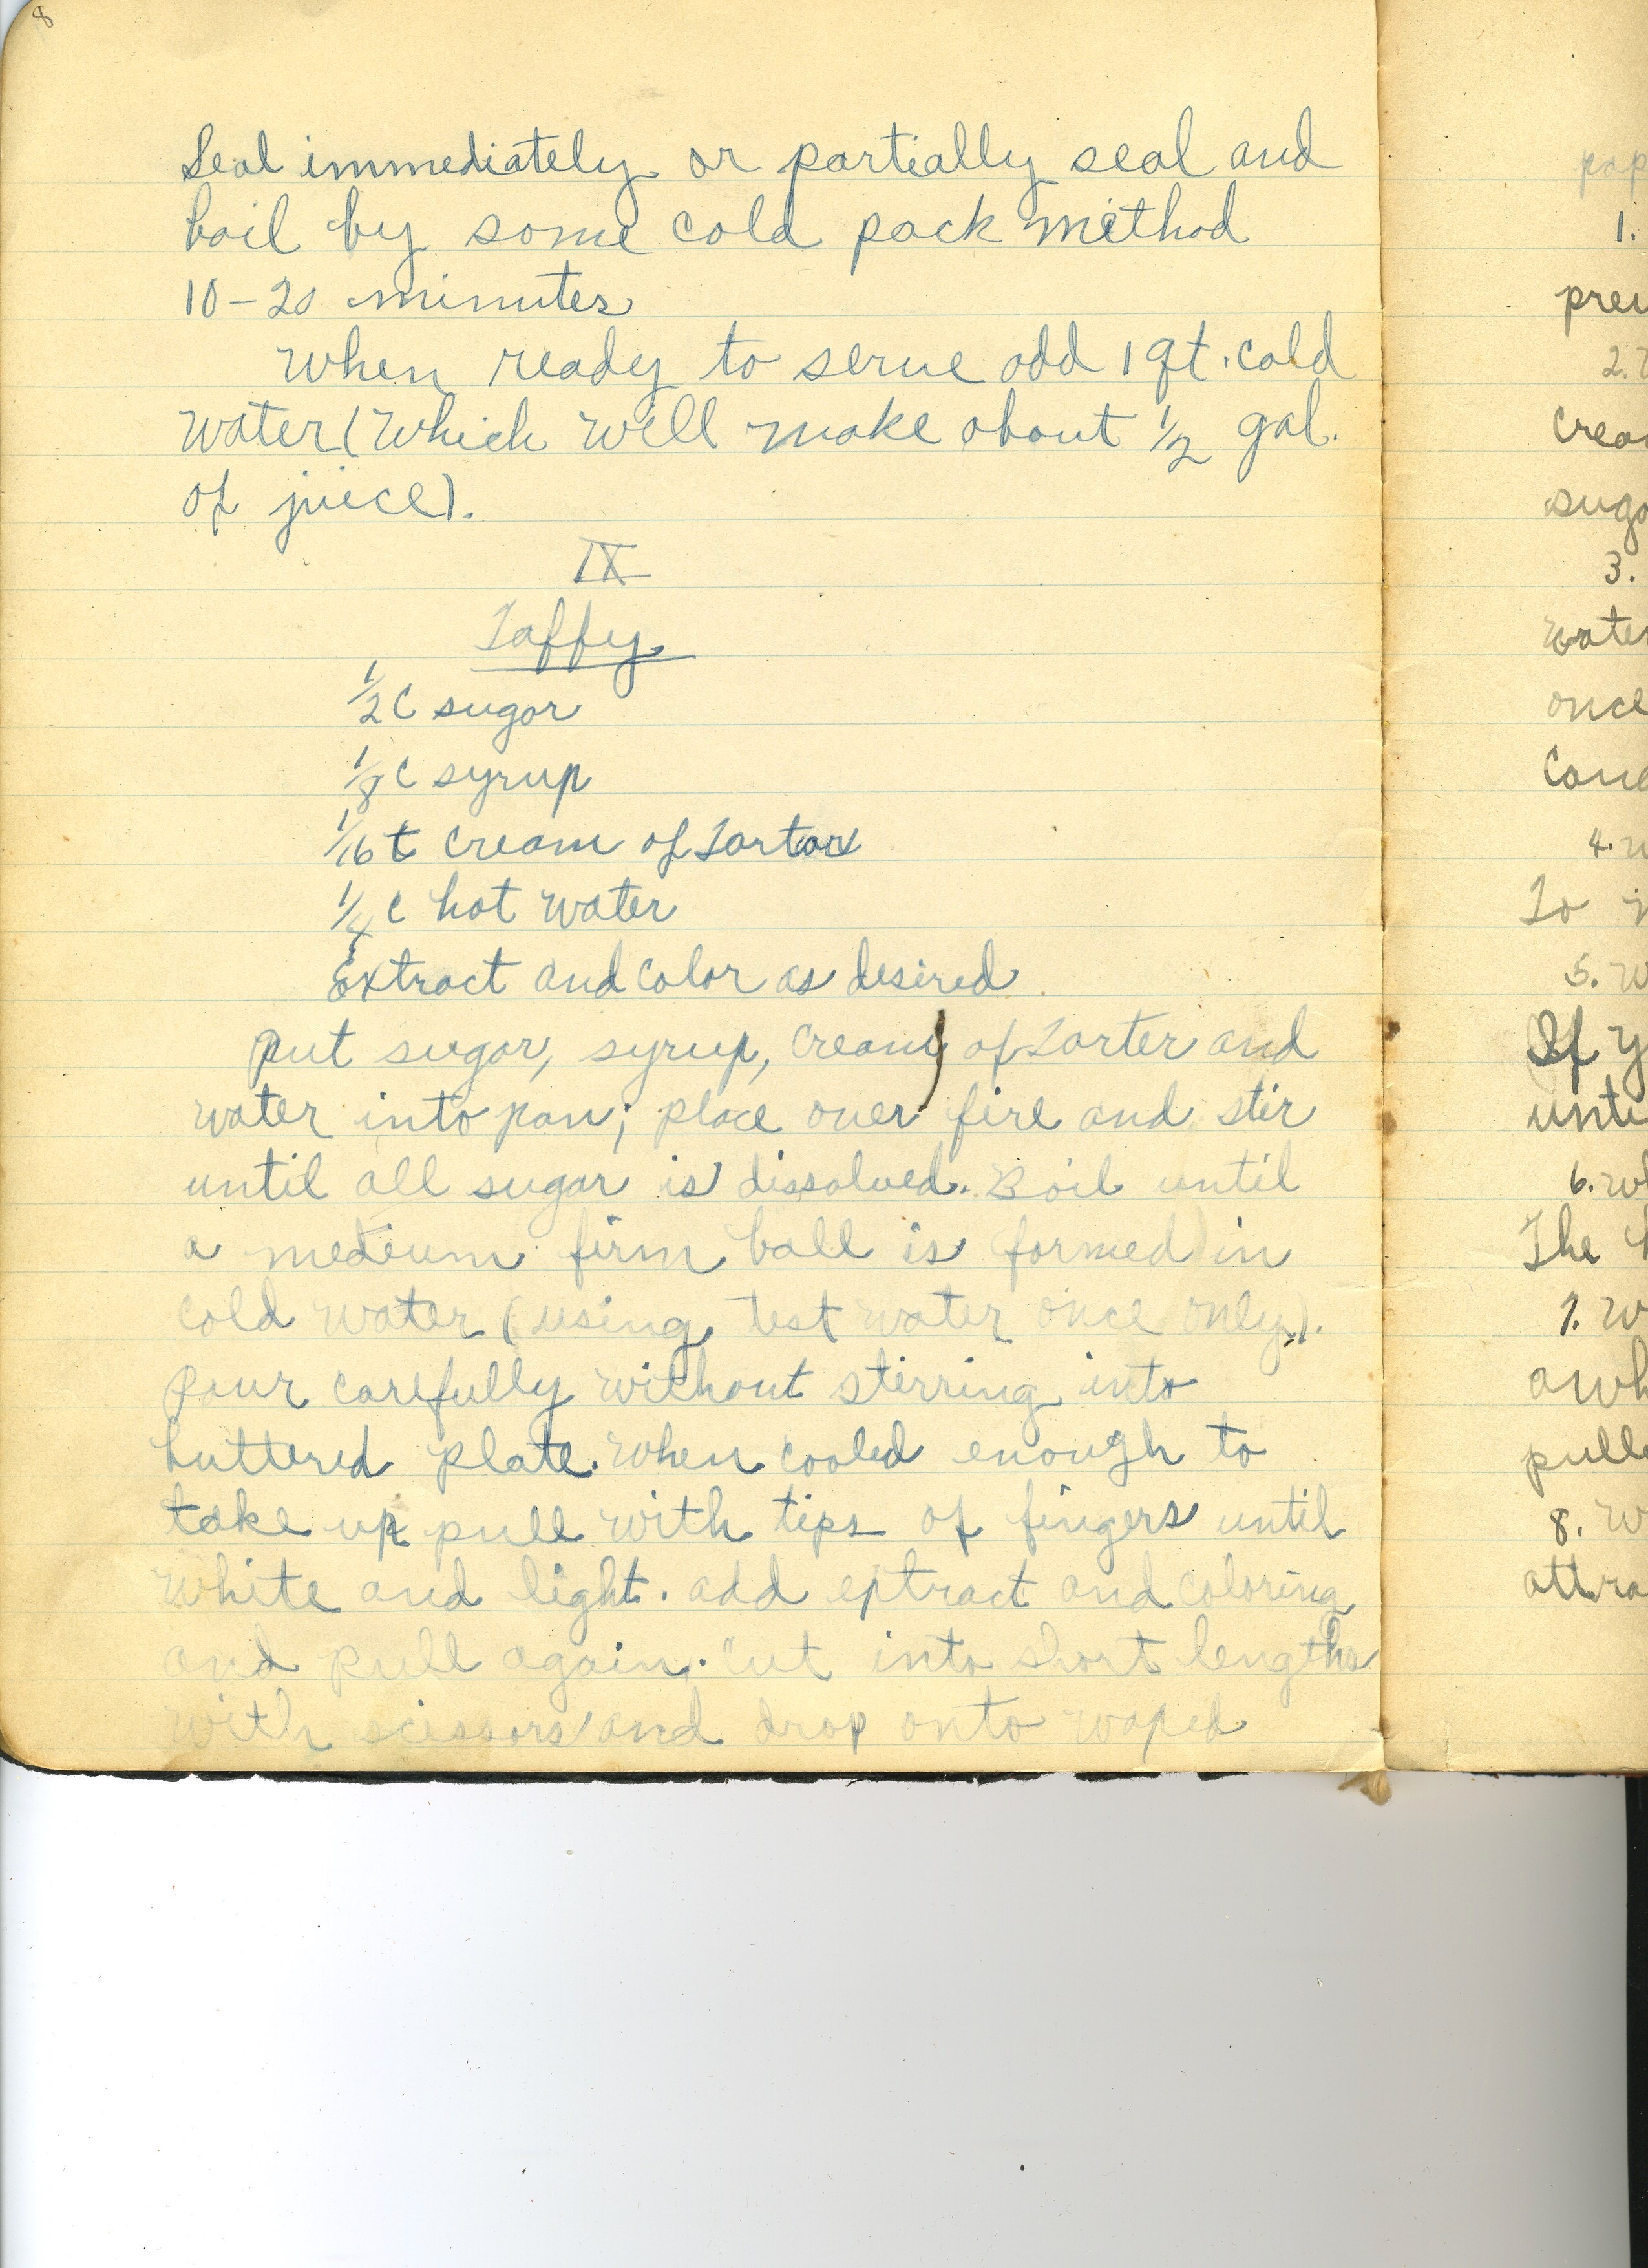 8
Seal immediately or partially seal and
boil by some cold pack method
10-20 minutes
When ready to serve add 1 qt. cold
water (which will make about 1/2 gal.
of juice).
IX
Taffy
1/2 C sugar
1/8 C syrup
1/16 t cream of Tartar
1/4 c hot water
Extract and color as desired
Put sugar, syrup, cream of Tarter and
water into pan; place over fire and stir
until all sugar is dissolved. Boil until
a medium firm ball is formed in
cold water (using test water once only).
Pour carefully without stirring into
buttered plate. When cooled enough to
take up pull with tips of fingers until
white and light. add extract and coloring
and pull again. Cut into short lengths
with scissors and drop onto waped
pap
1.
prev
2.
crea
suga
3.
water
once
Cane
4. w
To
5. W
If y
unti
6. wh
The
7. w
awh
pulle
8. W
attra